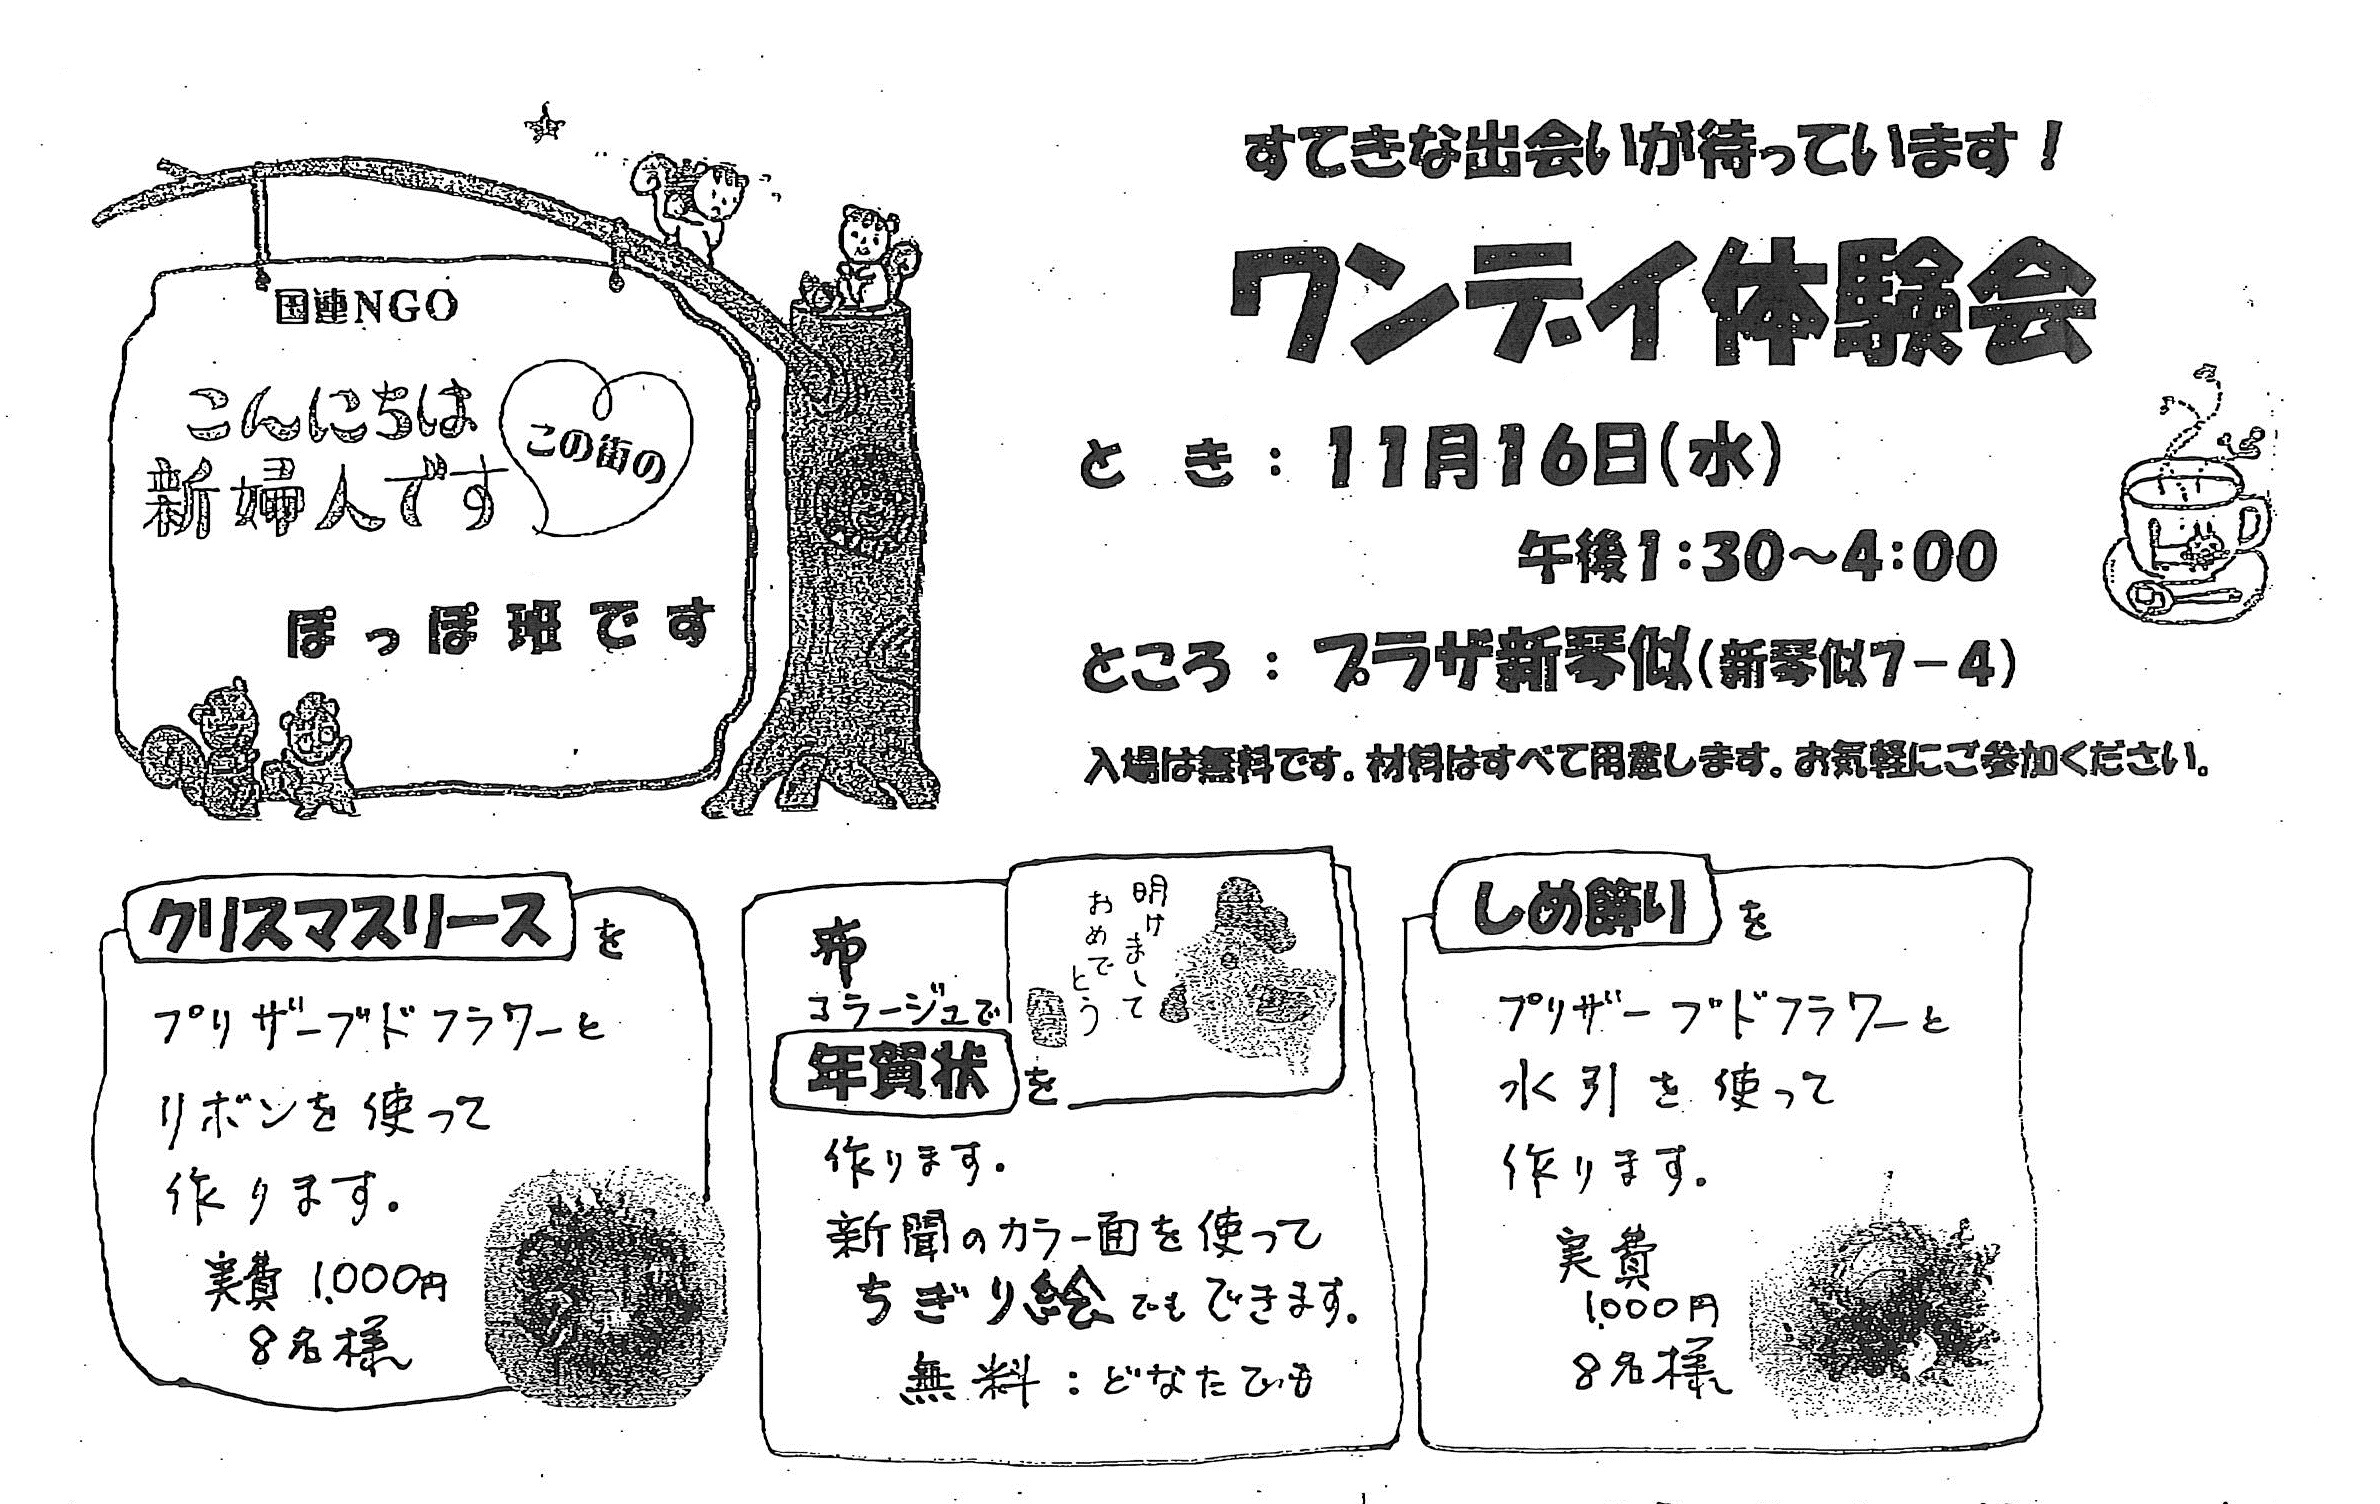 国連NGO
こんにちは
この街の
新婦人です
ぽっぽ班です
すてきな出会いが待っています！
ワンデイ体験会
とき：11月16日(水)
午後1:30～4:00
ところ：プラザ新琴似(新琴似7－4)
入場は無料です。材料はすべて用意します。お気軽にご参加ください。
クリスマスリースを
プリザーブドフラワーと
リボンを使って
作ります。
実費 1,000円
8名様
布
コラージュで
年賀状を
明けまして
おめでとう
作ります。
新聞のカラー面を使って
ちぎり絵でもできます。
無料：どなたでも
しめ飾りを
プリザーブドフラワーと
水引を使って
作ります。
実費
1,000円
8名様